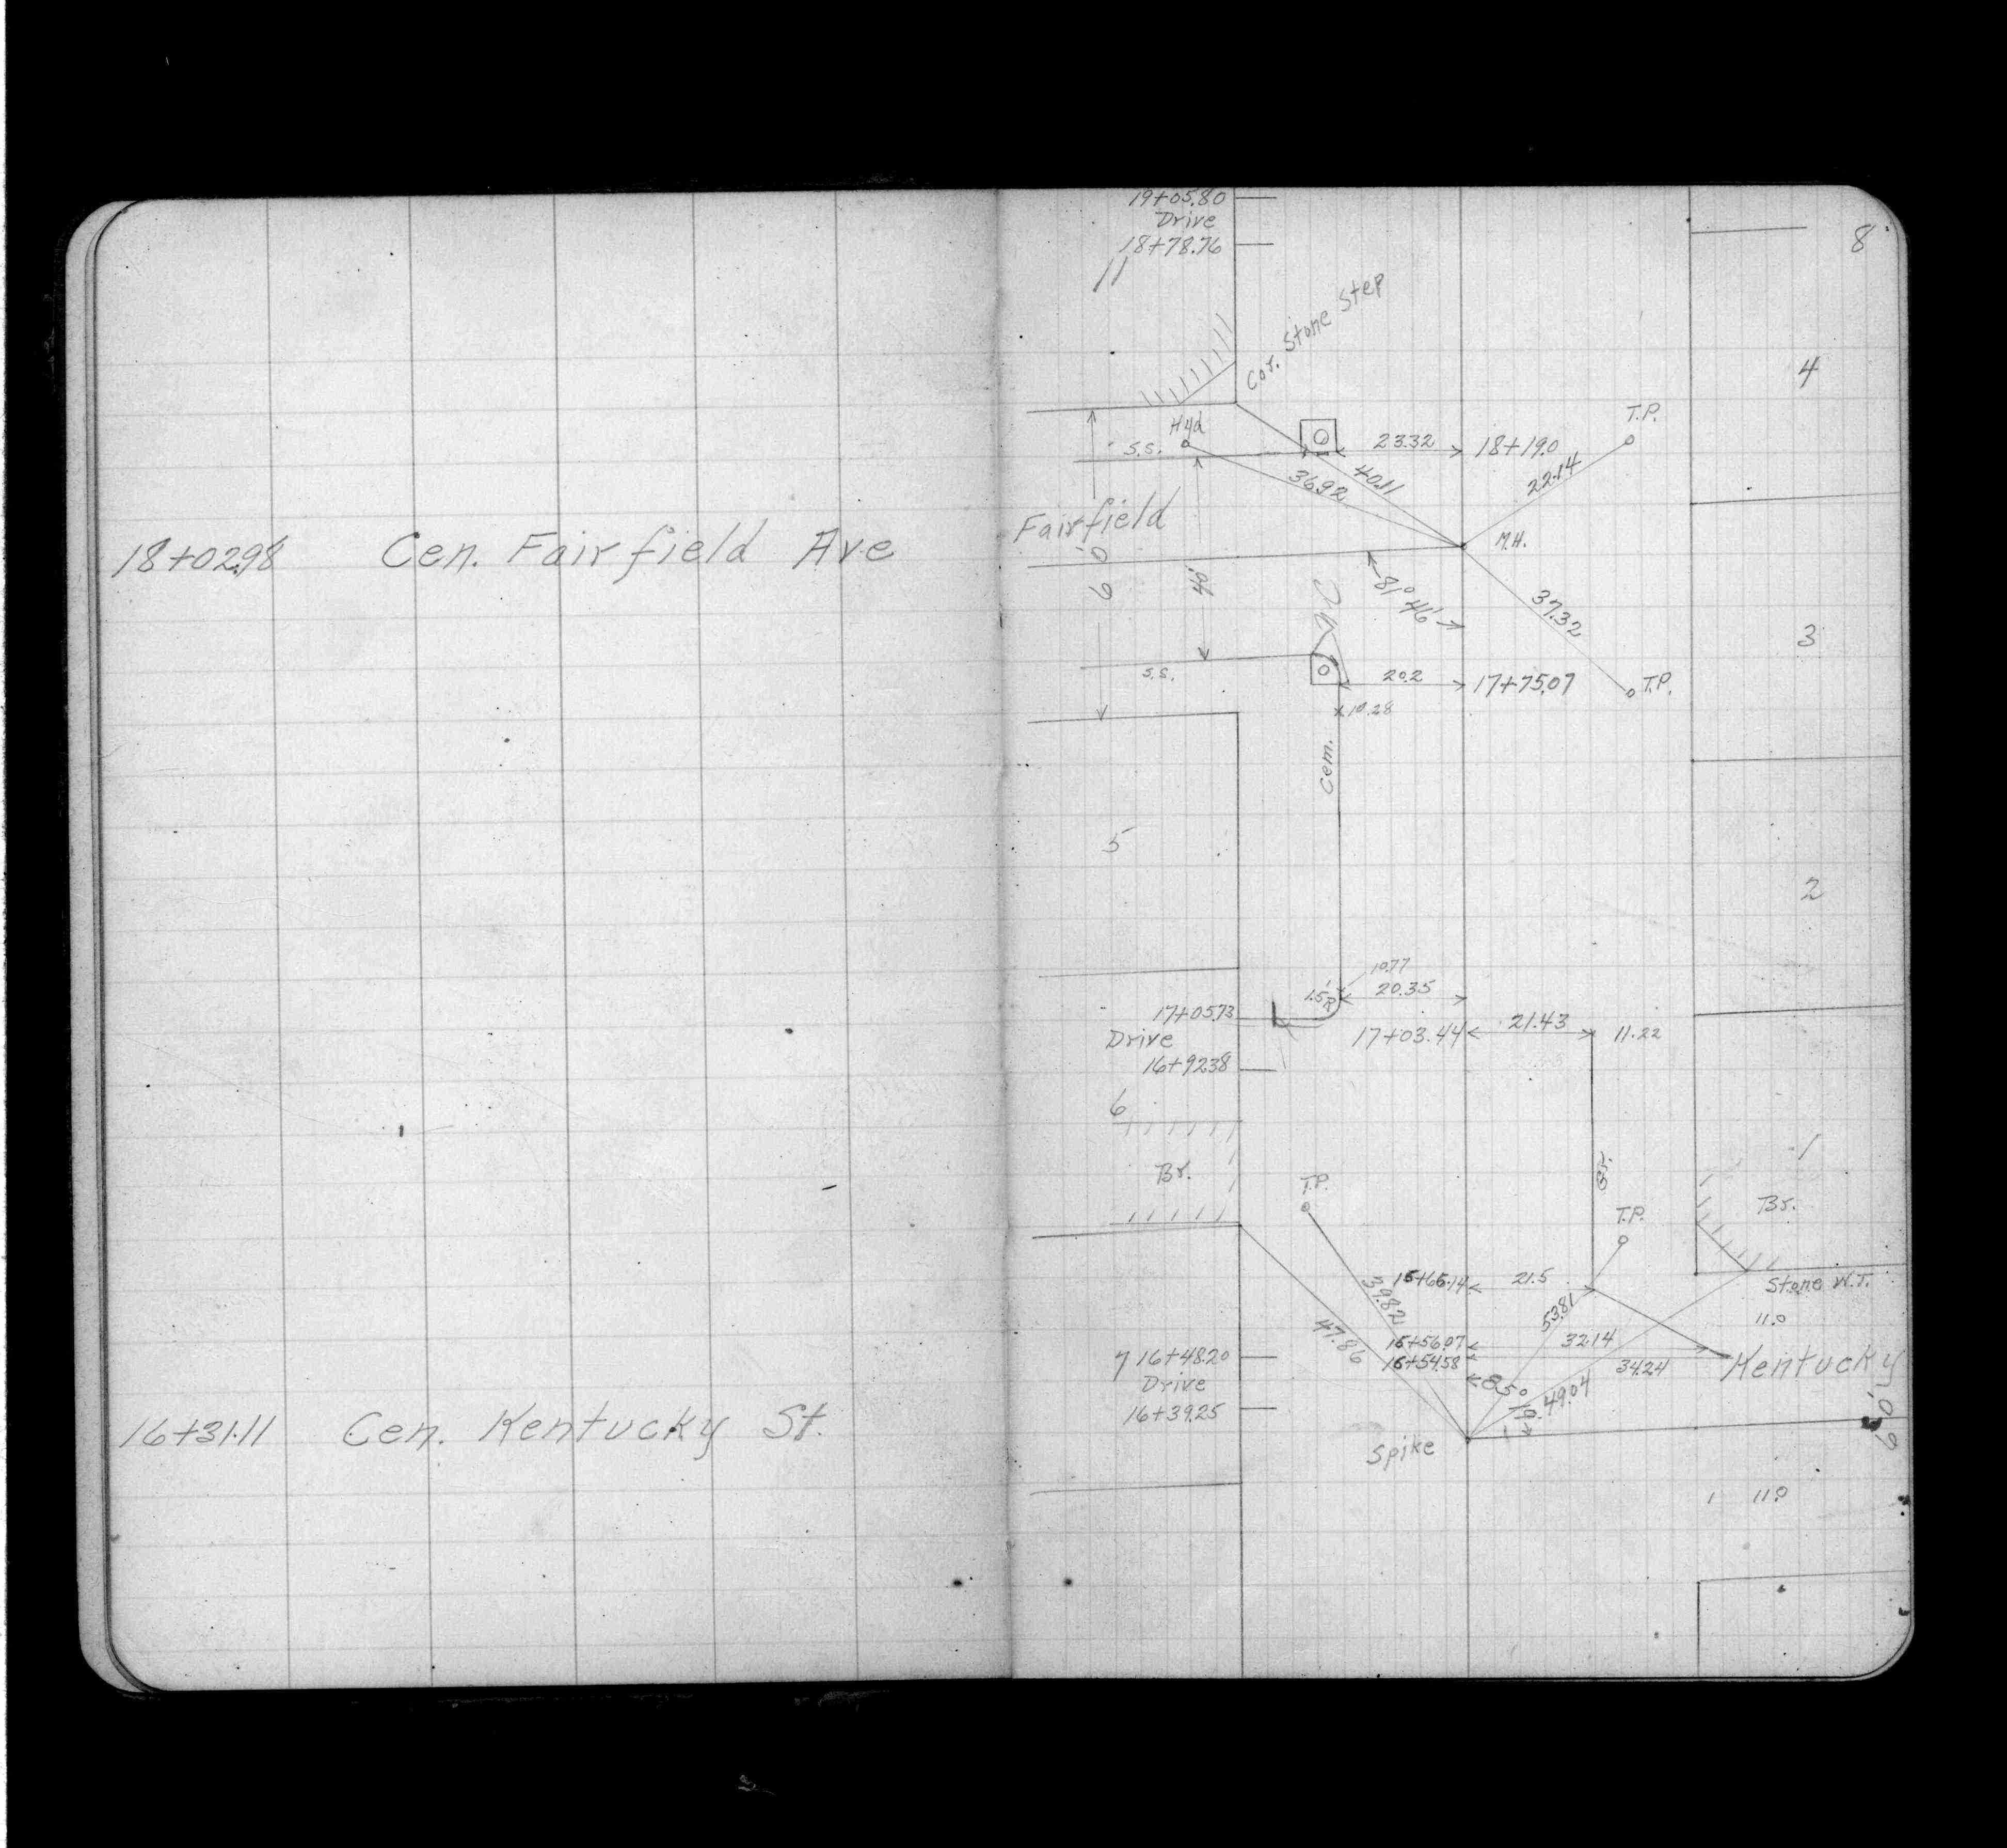 18+02.98 Cen. Fairfield Ave
16+31.11 Cen. Kentucky St.
19+05.80
Drive
18+78.76
11
8
Cor. Stone Step
4
Hyd
T.P.
S.S.
23.32
18+19.0
36.92
40.11
22.14
Fairfield
60'
40'
M.H.
81° 46'
37.32
3
S.S.
20.2
17+75.07
T.P.
10.28
Cem.
5
2
10.77
1.5'R
20.35
17+05.73
17+03.44
21.43
11.22
Drive
16+92.38
6
1
Br.
T.P.
Gr.
Br.
T.P.
16+66.14
21.5
Stone W.T.
39.82
53.81
11.0
47.86
16+56.07
32.14
7
16+48.20
16+54.58
34.24
Kentucky
Drive
49.04
16+39.25
60'
Spike
11.0